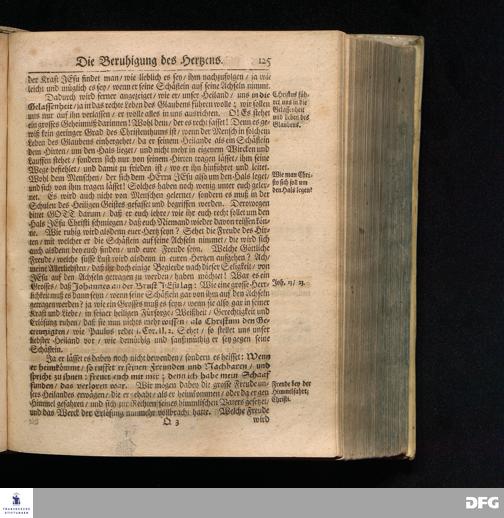 Die Beruhigung des Hertzens. 125
der Krafft JEsu findet man/ wie lieblich es sey/ ihm nachzufolgen/ ja wie
leicht und müglich es sey/ wenn er seine Schäflein auf seine Achseln nimmt.
Dadurch wird ferner angezeiget/ wie er/ unser Heiland/ uns in die
Gelassenheit/ ja in das rechte Leben des Glaubens führen wolle; wir sollen
uns nur auf ihn verlassen/ er wolle alles in uns ausrichten. O! Es stehet
ein grosses Geheimniß darinnen! Wohl dem/ der es recht fasset! Denn es ge-
wiß kein geringer Grad des Christenthums ist/ wenn der Mensch in solchem
Leben des Glaubens einhergehet/ da er seinem Heilande als ein Schäflein
dem Hirten/ um den Hals lieget/ und nicht mehr in eigenem Wircken und
Lauffen stehet/ sondern sich nur von seinem Hirten tragen lässet/ ihm seine
Wege befiehlet/ und damit zu frieden ist/ wo er ihn hinführet und leitet.
Wohl dem Menschen/ der sich dem HErrn JEsu also um den Hals leget/
und sich von ihm tragen lässet! Solches haben noch wenig unter euch geler-
net. Es wird auch nicht von Menschen gelernet/ sondern es muß in der
Schulen des Heiligen Geistes gefasset und begriffen werden. Derowegen
bittet GOTT darum/ daß er euch lehre/ wie ihr euch recht sollet um den
Hals JEsu Christi schmiegen/ daß euch Niemand wieder davon reissen kön-
ne. Wie ruhig wird alsdenn euer Hertz seyn? Sehet die Freude des Hir-
ten/ mit welcher er die Schäflein auf seine Achseln nimmet/ die wird sich
auch alsdenn bey euch finden/ und eure Freude seyn. Welche Göttliche
Freude/ welche süsse Lust wird alsdenn in euren Hertzen aufgehen? Ach/
meine Allerliebsten/ daß ihr doch einige Begierde nach dieser Seligkeit/ von
JEsu auf den Achseln getragen zu werden/ haben möchtet! War es ein
Grosses/ daß Johannes an der Brust JEsu lag: Wie eine grosse Herr-
lichkeit muß es dann seyn/ wenn seine Schäflein gar von ihm auf den Achseln
getragen werden? ja wie ein Grosses muß es seyn/ wenn sie also gar in seiner
Krafft und Liebe/ in seiner heiligen Fürsorge/ Weisheit/ Gerechtigkeit und
Erlösung ruhen/ daß sie nun nichts mehr wissen/ als Christum den Ge-
creutzigten/ wie Paulus redet 1. Cor. II. 2. Sehet/ so stellet uns unser
liebster Heiland vor/ wie demüthig und sanfftmüthig er sey gegen seine
Schäflein.
Ja er lässet es dabey noch nicht bewenden/ sondern es heisset: Wenn
er heimkömmt/ so ruffet er seinen Freunden und Nachbaren/ und
spricht zu ihnen: freuet euch mit mir; denn ich habe mein Schaaf
funden/ das verloren war. Wir mögen dabey die grosse Freude un-
sers Heilandes erwägen/ die er gehabt/ als er heimkommen/ oder da er gen
Himmel gefahren/ und sich zur Rechten seines himmlischen Vaters gesetzet/
und das Werck der Erlösung nunmehr vollbracht hatte. Welche Freude
Q 3 wird
Christus füh-
ret uns in die
Gelassenheit
und Leben des
Glaubens.
Wie man Chri-
sto sich soll um
den Hals legen?
Joh. 13/ 23.
Freude bey der
Himmelfahrt
Christi.
FRANCKESCHE
STIFTUNGEN
DFG